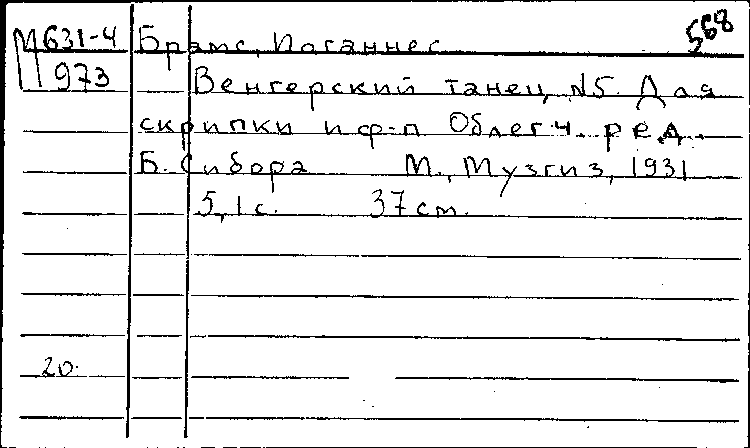 568
М631-4 Брамс, Иоганнес
М973 Венгерский танец №5. Для
скрипки и ф-п Облегч. ред.
Б. Сибора М., Музгиз, 1931
5, 1 с. 37 cm.
20.